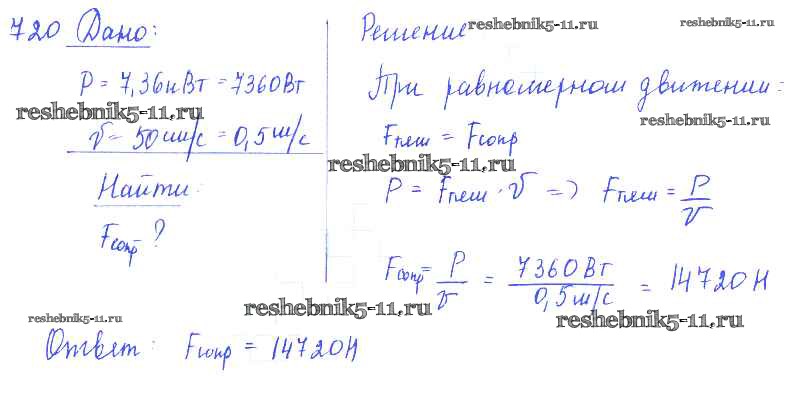 720 Дано:
P = 7,36кВт = 7360Вт
v = 50см/с = 0,5м/с
Найти:
Fсопр ?
Решение
При равномерном движении:
Fтяги = Fсопр
P = Fтяги · v => Fтяги = P/v
Fсопр = P/v = 7360Вт/0,5м/с = 14720Н
Ответ: Fсопр = 14720Н
reshebnik5-11.ru
reshebnik5-11.ru
reshebnik5-11.ru
reshebnik5-11.ru
reshebnik5-11.ru
reshebnik5-11.ru
reshebnik5-11.ru
reshebnik5-11.ru